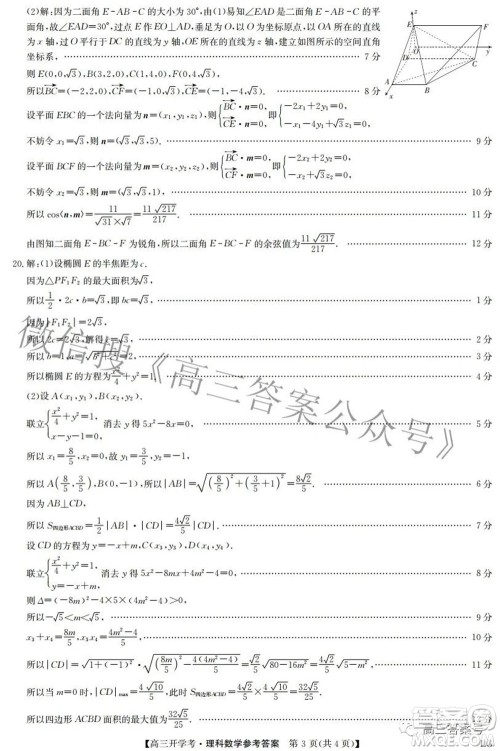 (2)解:因为二面角 E-AB-C 的大小为 30°,由(1)易知∠EAD 是二面角 E-AB-C 的平
面角,故∠EAD=30°,过 E 作 EO⊥AD,垂足为 O,以 O 为坐标原点,以 OA 所在的直线
为 x 轴,过 O 平行于 DC 的直线为 y 轴,OE 所在的直线为 z 轴,建立如图所示的空间直角
坐标系, 7 分
则 E(0,0,√3),B(3,2,0),C(1,4,0),F(0,4,√3),
所以BC=(-2,2,0),CE=(-1,-4,√3),CF=(-1,0,√3), 8 分
设平面 BCE 的一个法向量为 n=(x₁,y₁,z₁),则{BC·n=0, CE·n=0, 即{-2x₁+2y₁=0, -x₁-4y₁+√3z₁=0,
不妨令 x₁=√3,则 n=(√3,√3,5). 9 分
设平面 BCF 的一个法向量为 m=(x₂,y₂,z₂),则{BC·m=0, CF·m=0, 即{-2x₂+2y₂=0, -x₂+√3z₂=0,
不妨令 x₂=√3,则 m=(√3,√3,1), 10 分
所以 cos⟨n,m⟩=11/(√31×√7)=11√217/217. 11 分
由图知二面角 E-BC-F 为锐角,所以二面角 E-BC-F 的余弦值为11√217/217. 12 分
20. 解:(1)设椭圆 E 的半焦距为 c.
因为△PF₁F₂ 的最大面积为√3,
所以1/2·2c·b=√3,即 bc=√3, 1 分
因为|F₁F₂|=2√3,
所以 2c=2√3,解得 c=√3, 2 分
所以 b=1, 3 分
所以椭圆 E 的方程为x²/4+y²=1. 4 分
(2)设 A(x₁,y₁),B(x₂,y₂).
联立{x²/4+y²=1, x-y-1=0, 消去 y 得 5x²-8x=0, 5 分
所以 x₁=8/5,x₂=0,故 y₁=3/5,y₂=-1,
所以 A(8/5,3/5),B(0,-1),所以|AB|=√((8/5)²+(3/5+1)²)=8√2/5. 6 分
因为 AB⊥CD,
所以 S四边形ACBD=1/2|AB|·|CD|=4√2/5|CD|. 7 分
设 CD 的方程为 y=-x+m,C(x₃,y₃),D(x₄,y₄).
联立{x²/4+y²=1, y=-x+m, 消去 y 得 5x²-8mx+4m²-4=0. 8 分
则 Δ=(-8m)²-4×5×(4m²-4)>0,
所以-√5<m<√5. 9 分
x₃+x₄=8m/5,x₃x₄=(4m²-4)/5, 10 分
所以|CD|=√(1+(-1)²)·√((8m/5)²-4(4m²-4)/5)=√2/5 √(80-16m²)=4√2/5 √(5-m²), 11 分
所以当 m=0 时,|CD|max=4√10/5,此时 S四边形ACBD=4√2/5×4√10/5=32√5/25.
所以四边形 ACBD 面积的最大值为32√5/25. 12 分
【高三开学考·理科数学参考答案 第 3 页(共 4 页)】
微信搜《高三答案公众号》
高三答案号